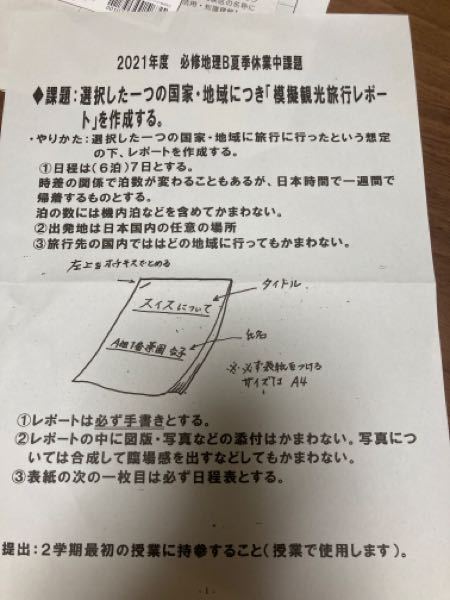 2021年度 必修地理B夏季休業中課題
◆課題：選択した一つの国家・地域につき「模擬観光旅行レポー
ト」を作成する。
・やりかた：選択した一つの国家・地域に旅行に行ったという想定
の下、レポートを作成する。
①日程は（6泊）7日とする。
時差の関係で泊数が変わることもあるが、日本時間で一週間で
帰着するものとする。
泊の数には機内泊などを含めてかまわない。
②出発地は日本国内の任意の場所
③旅行先の国内でははどの地域に行ってもかまわない。
左上をホチキスでとめる
タイトル
スイスについて
氏名
A組1番
※必ず表紙をつける
サイズは A4
①レポートは必ず手書きとする。
②レポートの中に図版・写真などの添付はかまわない。写真につ
いては合成して臨場感を出すなどしてもかまわない。
③表紙の次の一枚目は必ず日程表とする。
提出：2学期最初の授業に持参すること（授業で使用します）。
- 1 -